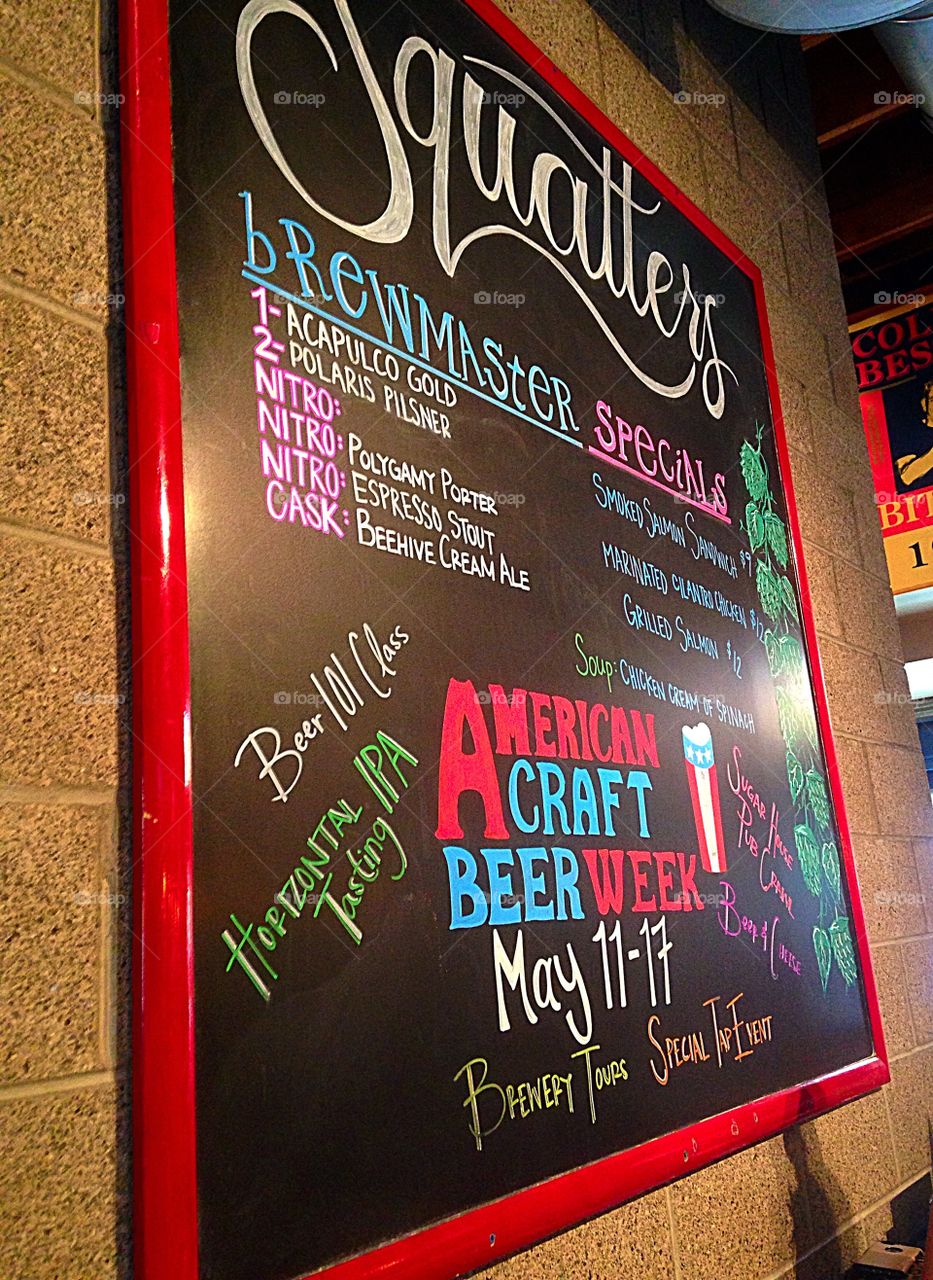 Squatters
bREWMAStER SPECiALS
1- ACAPULCO GOLD
2- POLARIS PILSNER
NITRO:
NITRO: POLYGAMY PORTER
NITRO: ESPRESSO STOUT
CASK: BEEHIVE CREAM ALE
SMOKED SALMON SANDWICH $9
MARINATED CILANTRO CHICKEN $12
GRILLED SALMON $12
Soup: CHICKEN CREAM OF SPINACH
Beer 101 Class
HORIZONTAL IPA
Tasting
AMERICAN
CRAFT
BEER WEEK
May 11-17
SUGAR HOUSE
PUB CRAWL
BEER & CHEESE
BREWERY TOURS
SPECIAL TAP EVENT
COL
BES
BIT
1
foap